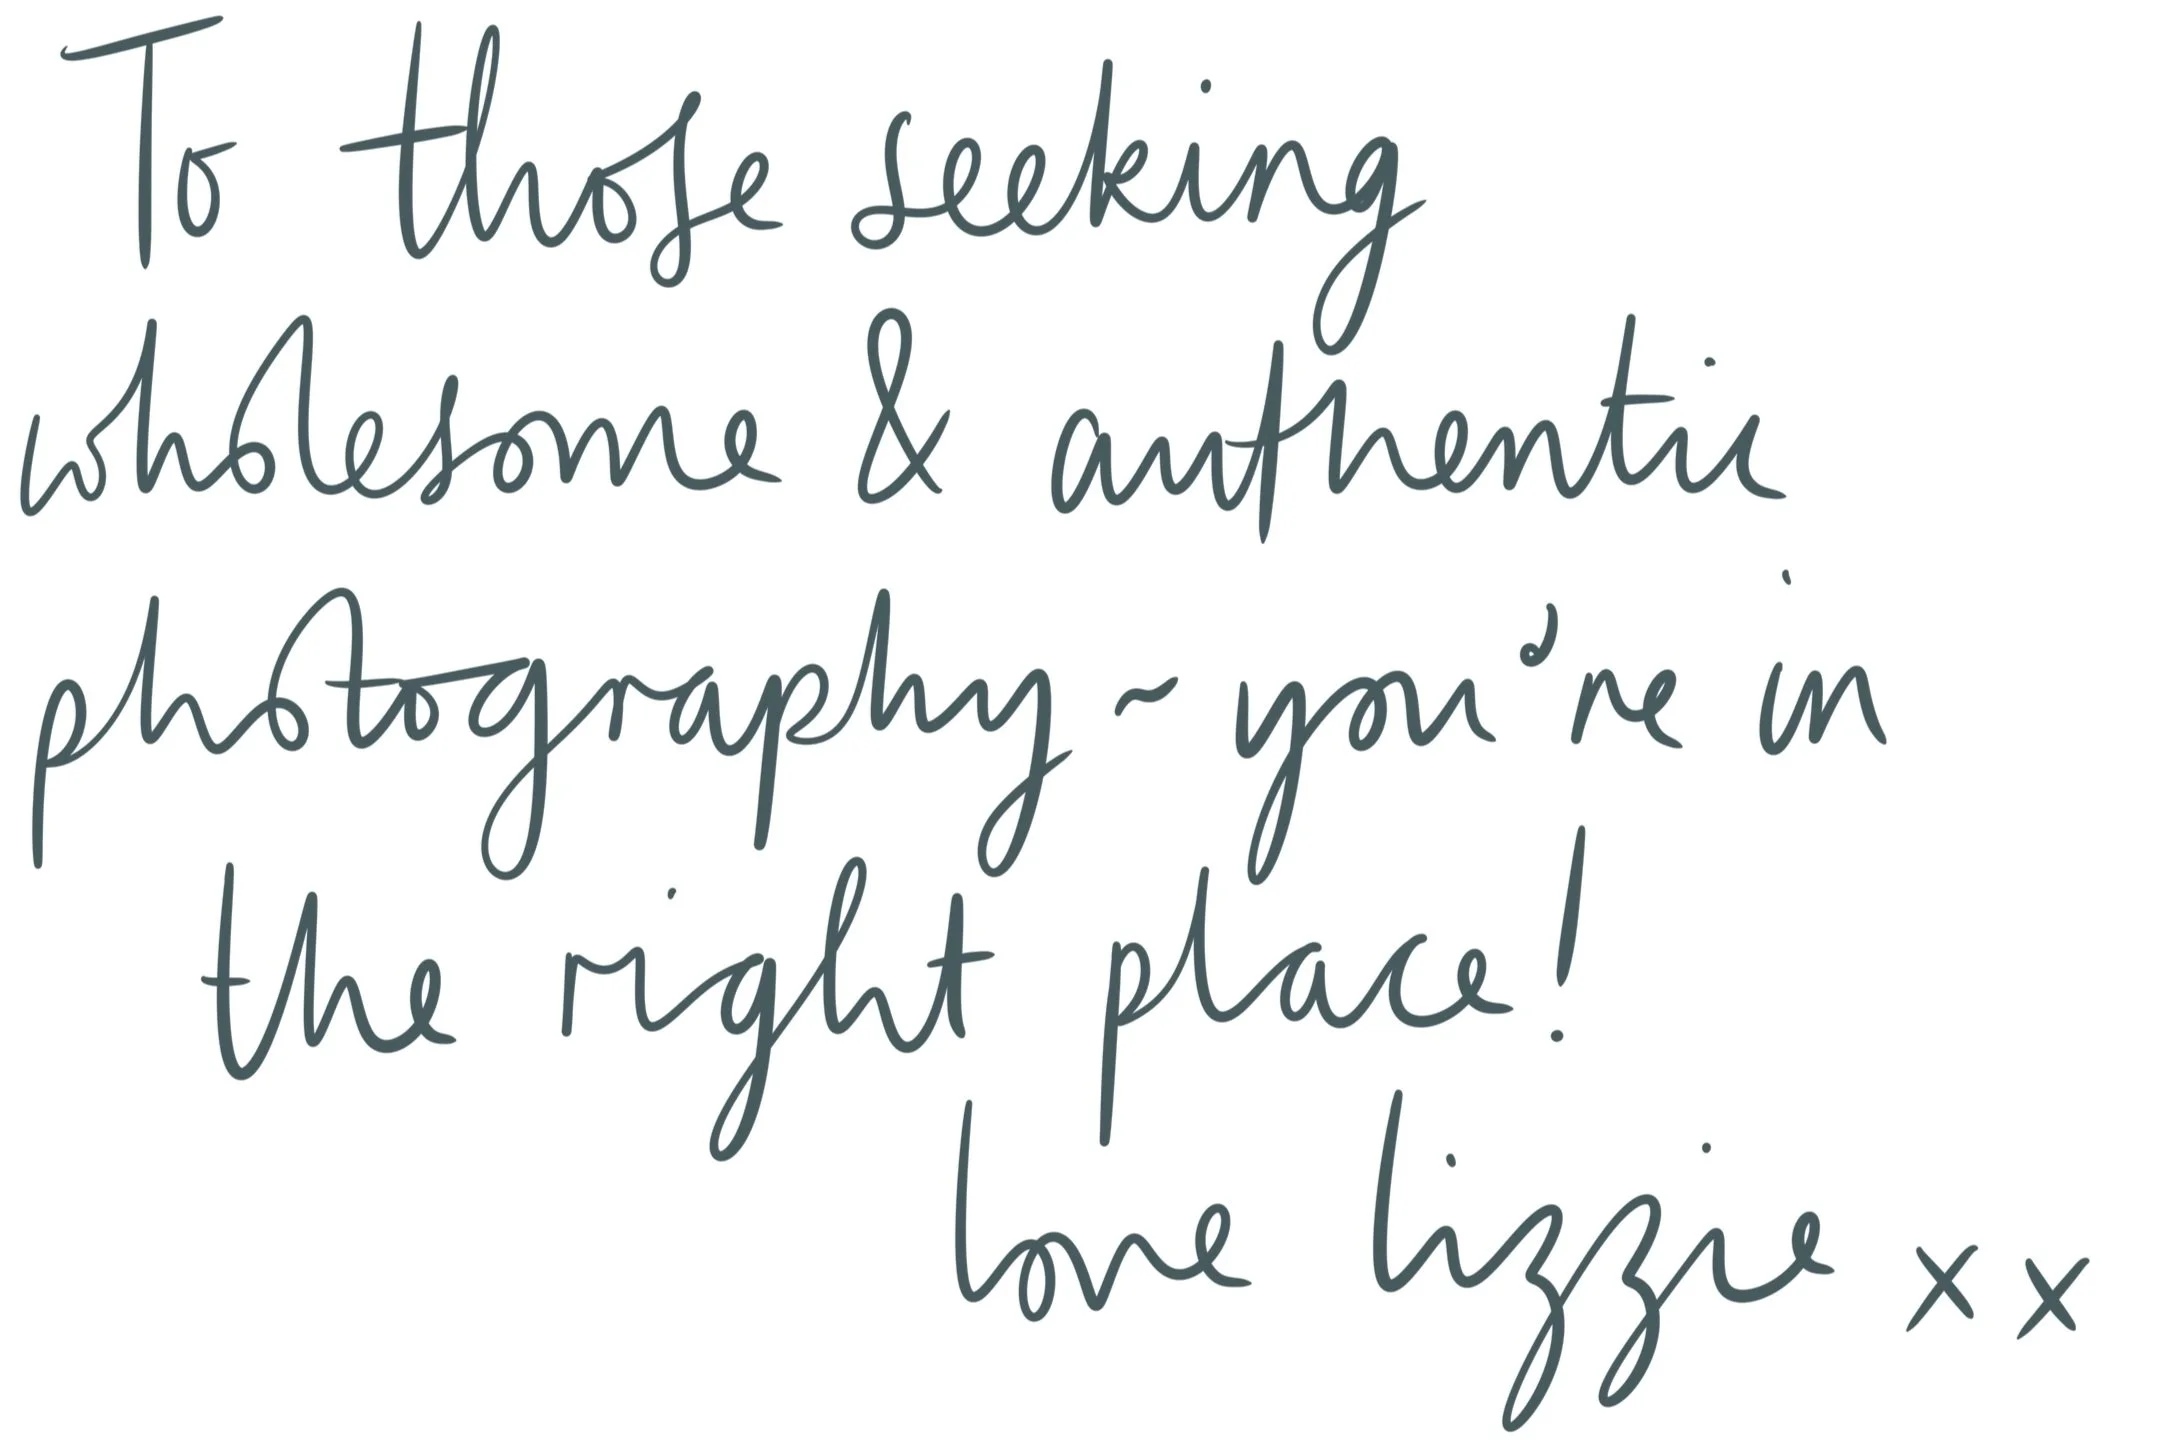 To those seeking
wholesome & authentic
photography ~ you're in
the right place!
love lizzie xx